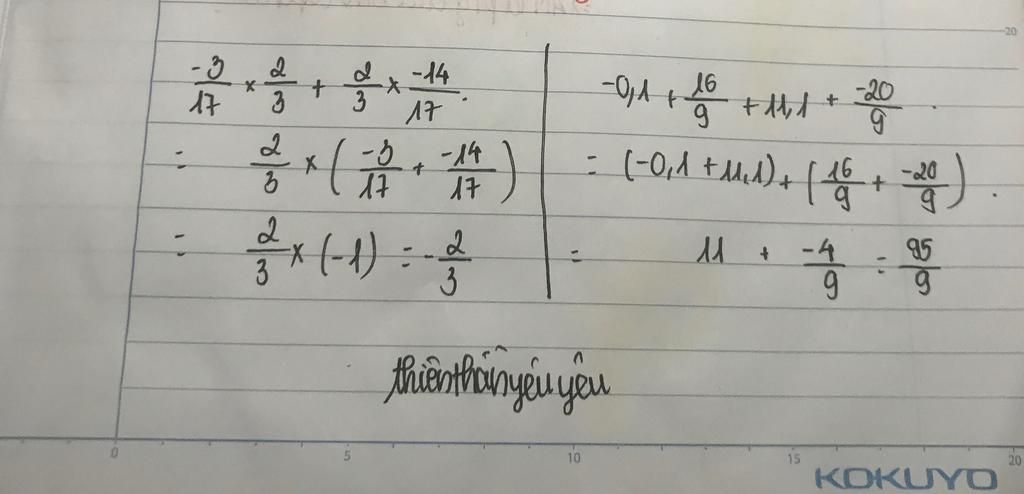 -3/17 × 2/3 + 2/3 × -14/17.
= 2/3 × (-3/17 + -14/17)
= 2/3 × (-1) = -2/3
-0,1 + 16/9 + 11,1 + -20/9.
= (-0,1 + 11,1) + (16/9 + -20/9).
= 11 + -4/9 = 95/9
thiênthầnyêuyêu
0 5 10 15 20
KOKUYO
20